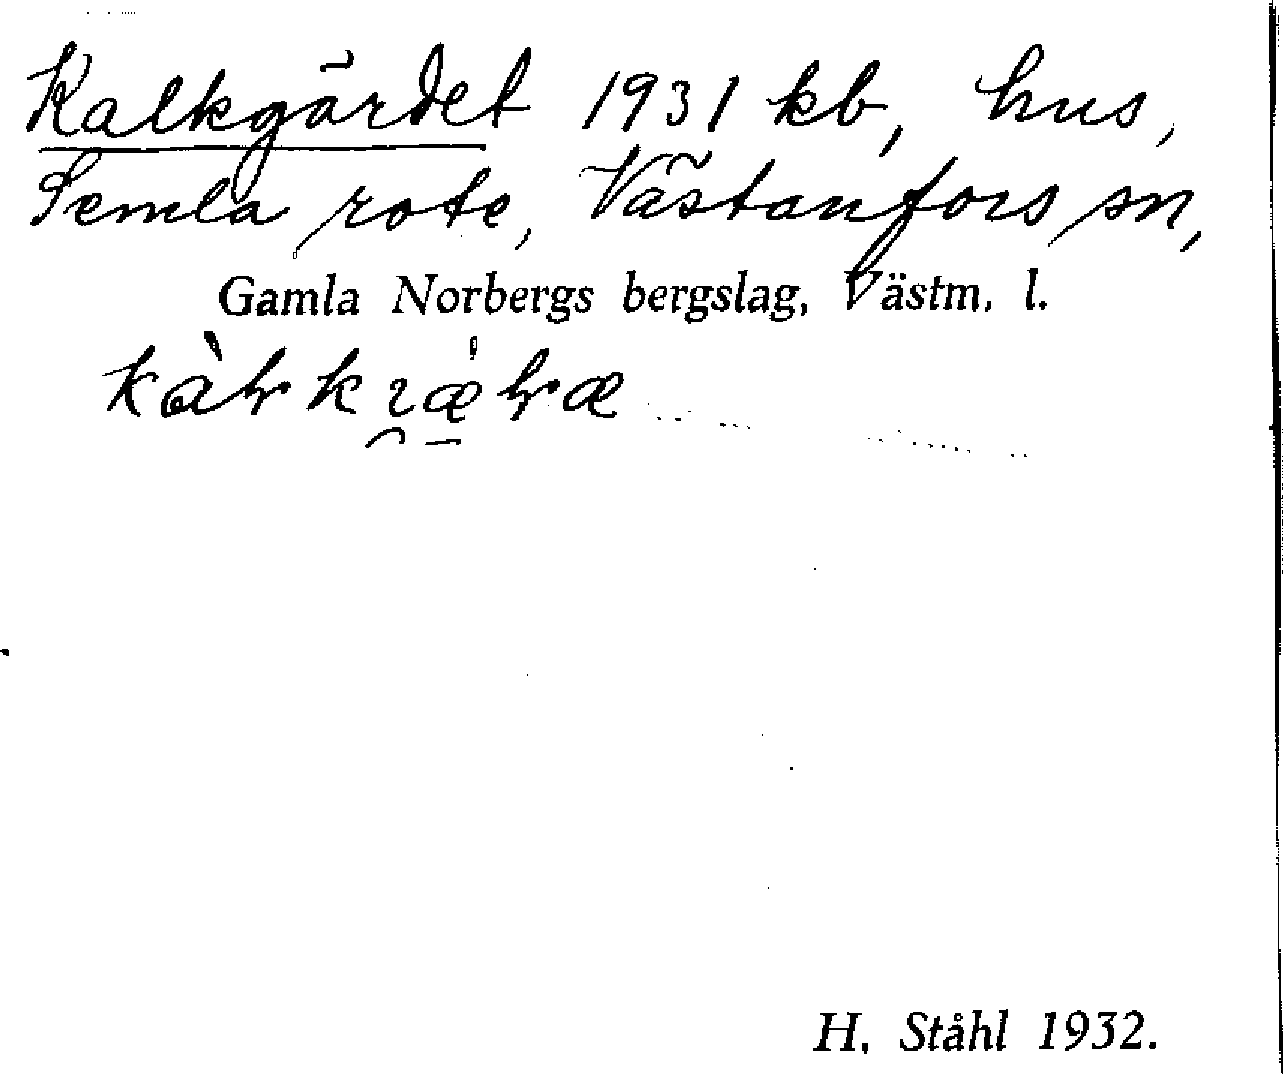 Kalkgärdet 1931 kb, hus,
Semla rote, Västanfors sn,
Gamla Norbergs bergslag, Västm. l.
H. Ståhl 1932.